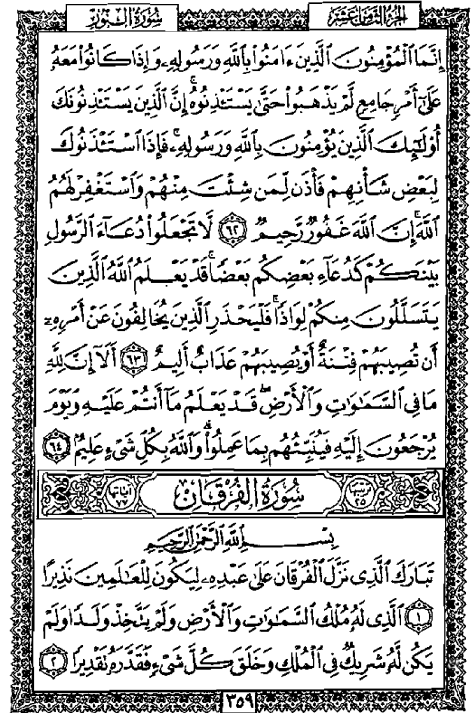 الجزء الثامن عشر
سورة النور
إِنَّمَا ٱلْمُؤْمِنُونَ ٱلَّذِينَ ءَامَنُوا۟ بِٱللَّهِ وَرَسُولِهِۦ وَإِذَا كَانُوا۟ مَعَهُۥ
عَلَىٰٓ أَمْرٍ جَامِعٍ لَّمْ يَذْهَبُوا۟ حَتَّىٰ يَسْتَـْٔذِنُوهُ ۚ إِنَّ ٱلَّذِينَ يَسْتَـْٔذِنُونَكَ
أُو۟لَـٰٓئِكَ ٱلَّذِينَ يُؤْمِنُونَ بِٱللَّهِ وَرَسُولِهِۦ ۚ فَإِذَا ٱسْتَـْٔذَنُوكَ
لِبَعْضِ شَأْنِهِمْ فَأْذَن لِّمَن شِئْتَ مِنْهُمْ وَٱسْتَغْفِرْ لَهُمُ
ٱللَّهَ ۚ إِنَّ ٱللَّهَ غَفُورٌ رَّحِيمٌ ٦٢ لَّا تَجْعَلُوا۟ دُعَآءَ ٱلرَّسُولِ
بَيْنَكُمْ كَدُعَآءِ بَعْضِكُم بَعْضًا ۚ قَدْ يَعْلَمُ ٱللَّهُ ٱلَّذِينَ
يَتَسَلَّلُونَ مِنكُمْ لِوَاذًا ۚ فَلْيَحْذَرِ ٱلَّذِينَ يُخَالِفُونَ عَنْ أَمْرِهِۦٓ
أَن تُصِيبَهُمْ فِتْنَةٌ أَوْ يُصِيبَهُمْ عَذَابٌ أَلِيمٌ ٦٣ أَلَآ إِنَّ لِلَّهِ
مَا فِى ٱلسَّمَـٰوَٰتِ وَٱلْأَرْضِ ۖ قَدْ يَعْلَمُ مَآ أَنتُمْ عَلَيْهِ وَيَوْمَ
يُرْجَعُونَ إِلَيْهِ فَيُنَبِّئُهُم بِمَا عَمِلُوا۟ ۗ وَٱللَّهُ بِكُلِّ شَىْءٍ عَلِيمٌ ٦٤
سورة الفرقان
بِسْمِ ٱللَّهِ ٱلرَّحْمَـٰنِ ٱلرَّحِيمِ
تَبَارَكَ ٱلَّذِى نَزَّلَ ٱلْفُرْقَانَ عَلَىٰ عَبْدِهِۦ لِيَكُونَ لِلْعَـٰلَمِينَ نَذِيرًا
١ ٱلَّذِى لَهُۥ مُلْكُ ٱلسَّمَـٰوَٰتِ وَٱلْأَرْضِ وَلَمْ يَتَّخِذْ وَلَدًا وَلَمْ
يَكُن لَّهُۥ شَرِيكٌ فِى ٱلْمُلْكِ وَخَلَقَ كُلَّ شَىْءٍ فَقَدَّرَهُۥ تَقْدِيرًا ٢
٣٥٩